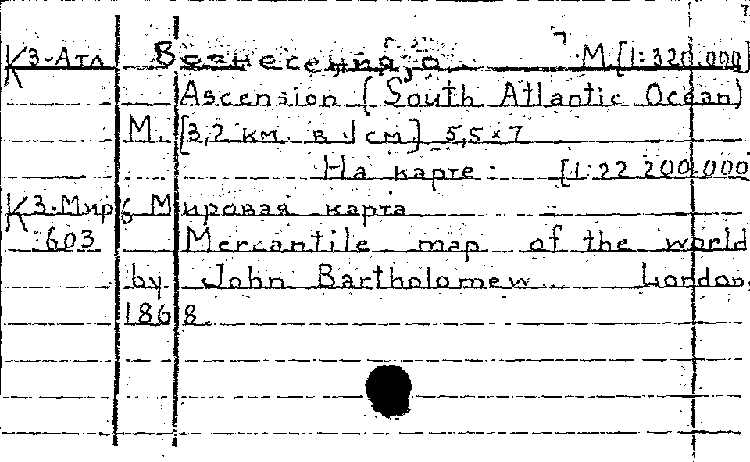 К3-Атл Вознесения о М.[1:320.000]
Ascension (South Atlantic Ocean)
М. [3,2 км. в 1 см] 5,5×7
На карте: [1:22 200.000
К3-Мир Мировая карта
603 Mercantile map of the world
by John Bartholomew London,
1868